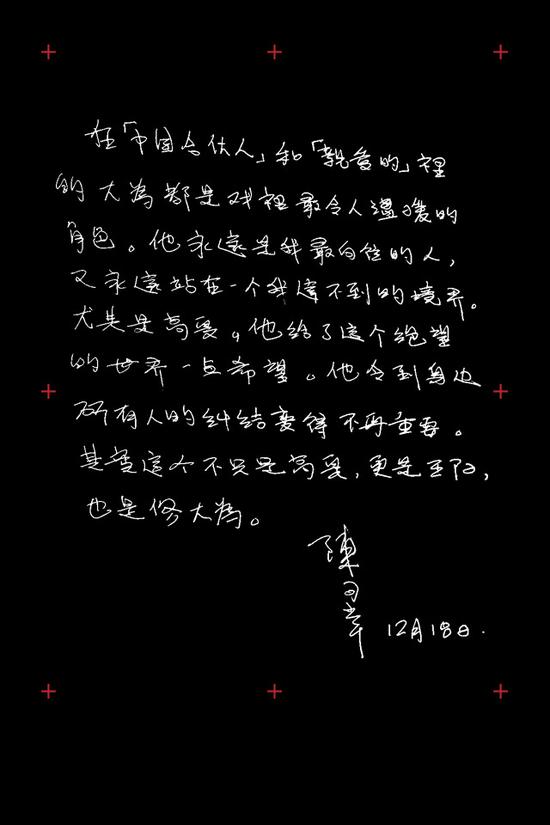 在「中国合伙人」和「親爱的」裡
的大為都是戏裡最令人溫暖的
角色。他永遠是我最向往的人，
又永遠站在一个我達不到的境界。
尤其是高夏。他给了這个绝望
的世界一点希望。他令到身边
所有人的纠结変得不再重要。
其实這个不只是高夏，更是王阳，
也是佟大為。
陳可辛
12月18日.